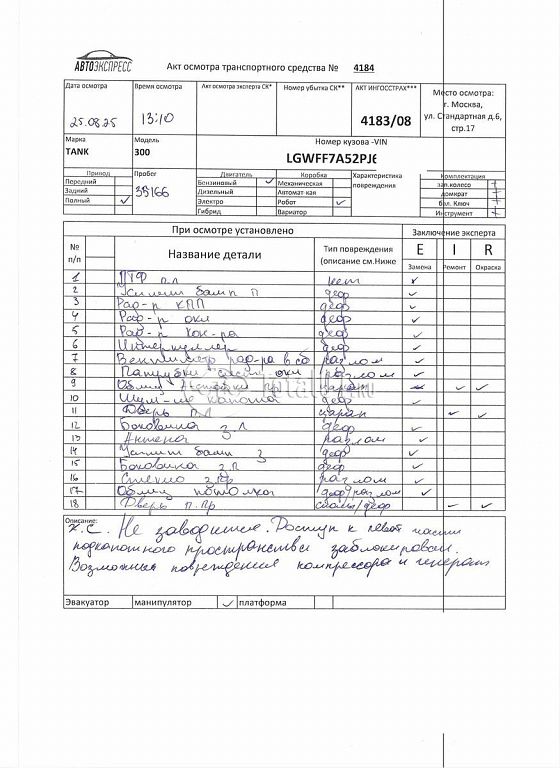 АВТОЭКСПРЕСС
Акт осмотра транспортного средства № 4184
Дата осмотра Время осмотра Акт осмотра эксперта СК* Номер убытка СК** АКТ ИНГОССТРАХ*** Место осмотра:
25.08.25 13:10 4183/08 г. Москва, ул. Стандартная д.6, стр.17
Марка Модель Номер кузова -VIN
TANK 300 LGWFF7A52PJ6
Привод Пробег Двигатель Коробка Характеристика повреждения Комплектация
Передний Бензиновый ✓ Механическая зап.колесо +
Задний Дизельный Автомат-кая домкрат
Полный ✓ Электро Робот ✓ бал. Ключ +
Гибрид Вариатор Инструмент +
При осмотре установлено Заключение эксперта
№ п/п Название детали Тип повреждения (описание см.Ниже E I R
Замена Ремонт Окраска
1 ПТФ п.л нет ✓
2 Усилит бамп п деф ✓
3 Рад-р КПП деф ✓
4 Рад-р охл деф ✓
5 Рад-р Кон-ра деф ✓
6 Интеркуллер деф ✓
7 Вентилятор рад-ра в сб разлом ✓
8 Патрубки охл разлом ✓
9 Облиц ✓ ✓
10 Шум-ия капота деф ✓
11 Дверь п.л царап ✓ ✓
12 Боковина з.л деф ✓
13 Антена разлом ✓
14 Усилит бамп з деф ✓
15 Боковина з.п деф ✓
16 Стекло разлом ✓
17 Облиц потолка деф/разлом ✓
18 Дверь п.пр сколы/деф ✓ ✓
Описание:
Х.С. Не заводится. Доступ к левой части
подкапотного пространства заблокирован.
Возможны повреждения компрессора и генератора
Эвакуатор манипулятор ✓ платформа